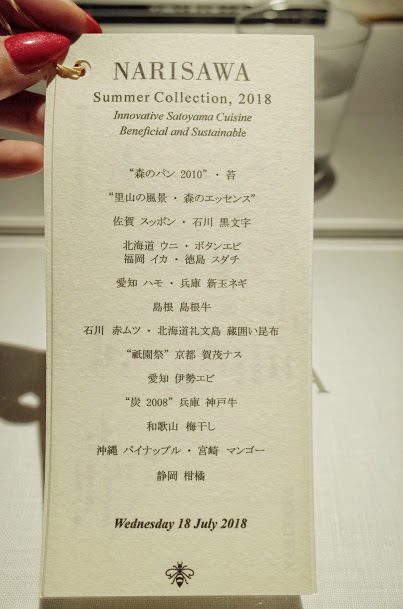 NARISAWA
Summer Collection, 2018
Innovative Satoyama Cuisine
Beneficial and Sustainable
“森のパン 2010”・苔
“里山の風景・森のエッセンス”
佐賀 スッポン・石川 黒文字
北海道 ウニ・ボタンエビ
福岡 イカ・徳島 スダチ
愛知 ハモ・兵庫 新玉ネギ
島根 島根牛
石川 赤ムツ・北海道礼文島 蔵囲い昆布
“祇園祭” 京都 賀茂ナス
愛知 伊勢エビ
“炭 2008” 兵庫 神戸牛
和歌山 梅干し
沖縄 パイナップル・宮崎 マンゴー
静岡 柑橘
Wednesday 18 July 2018